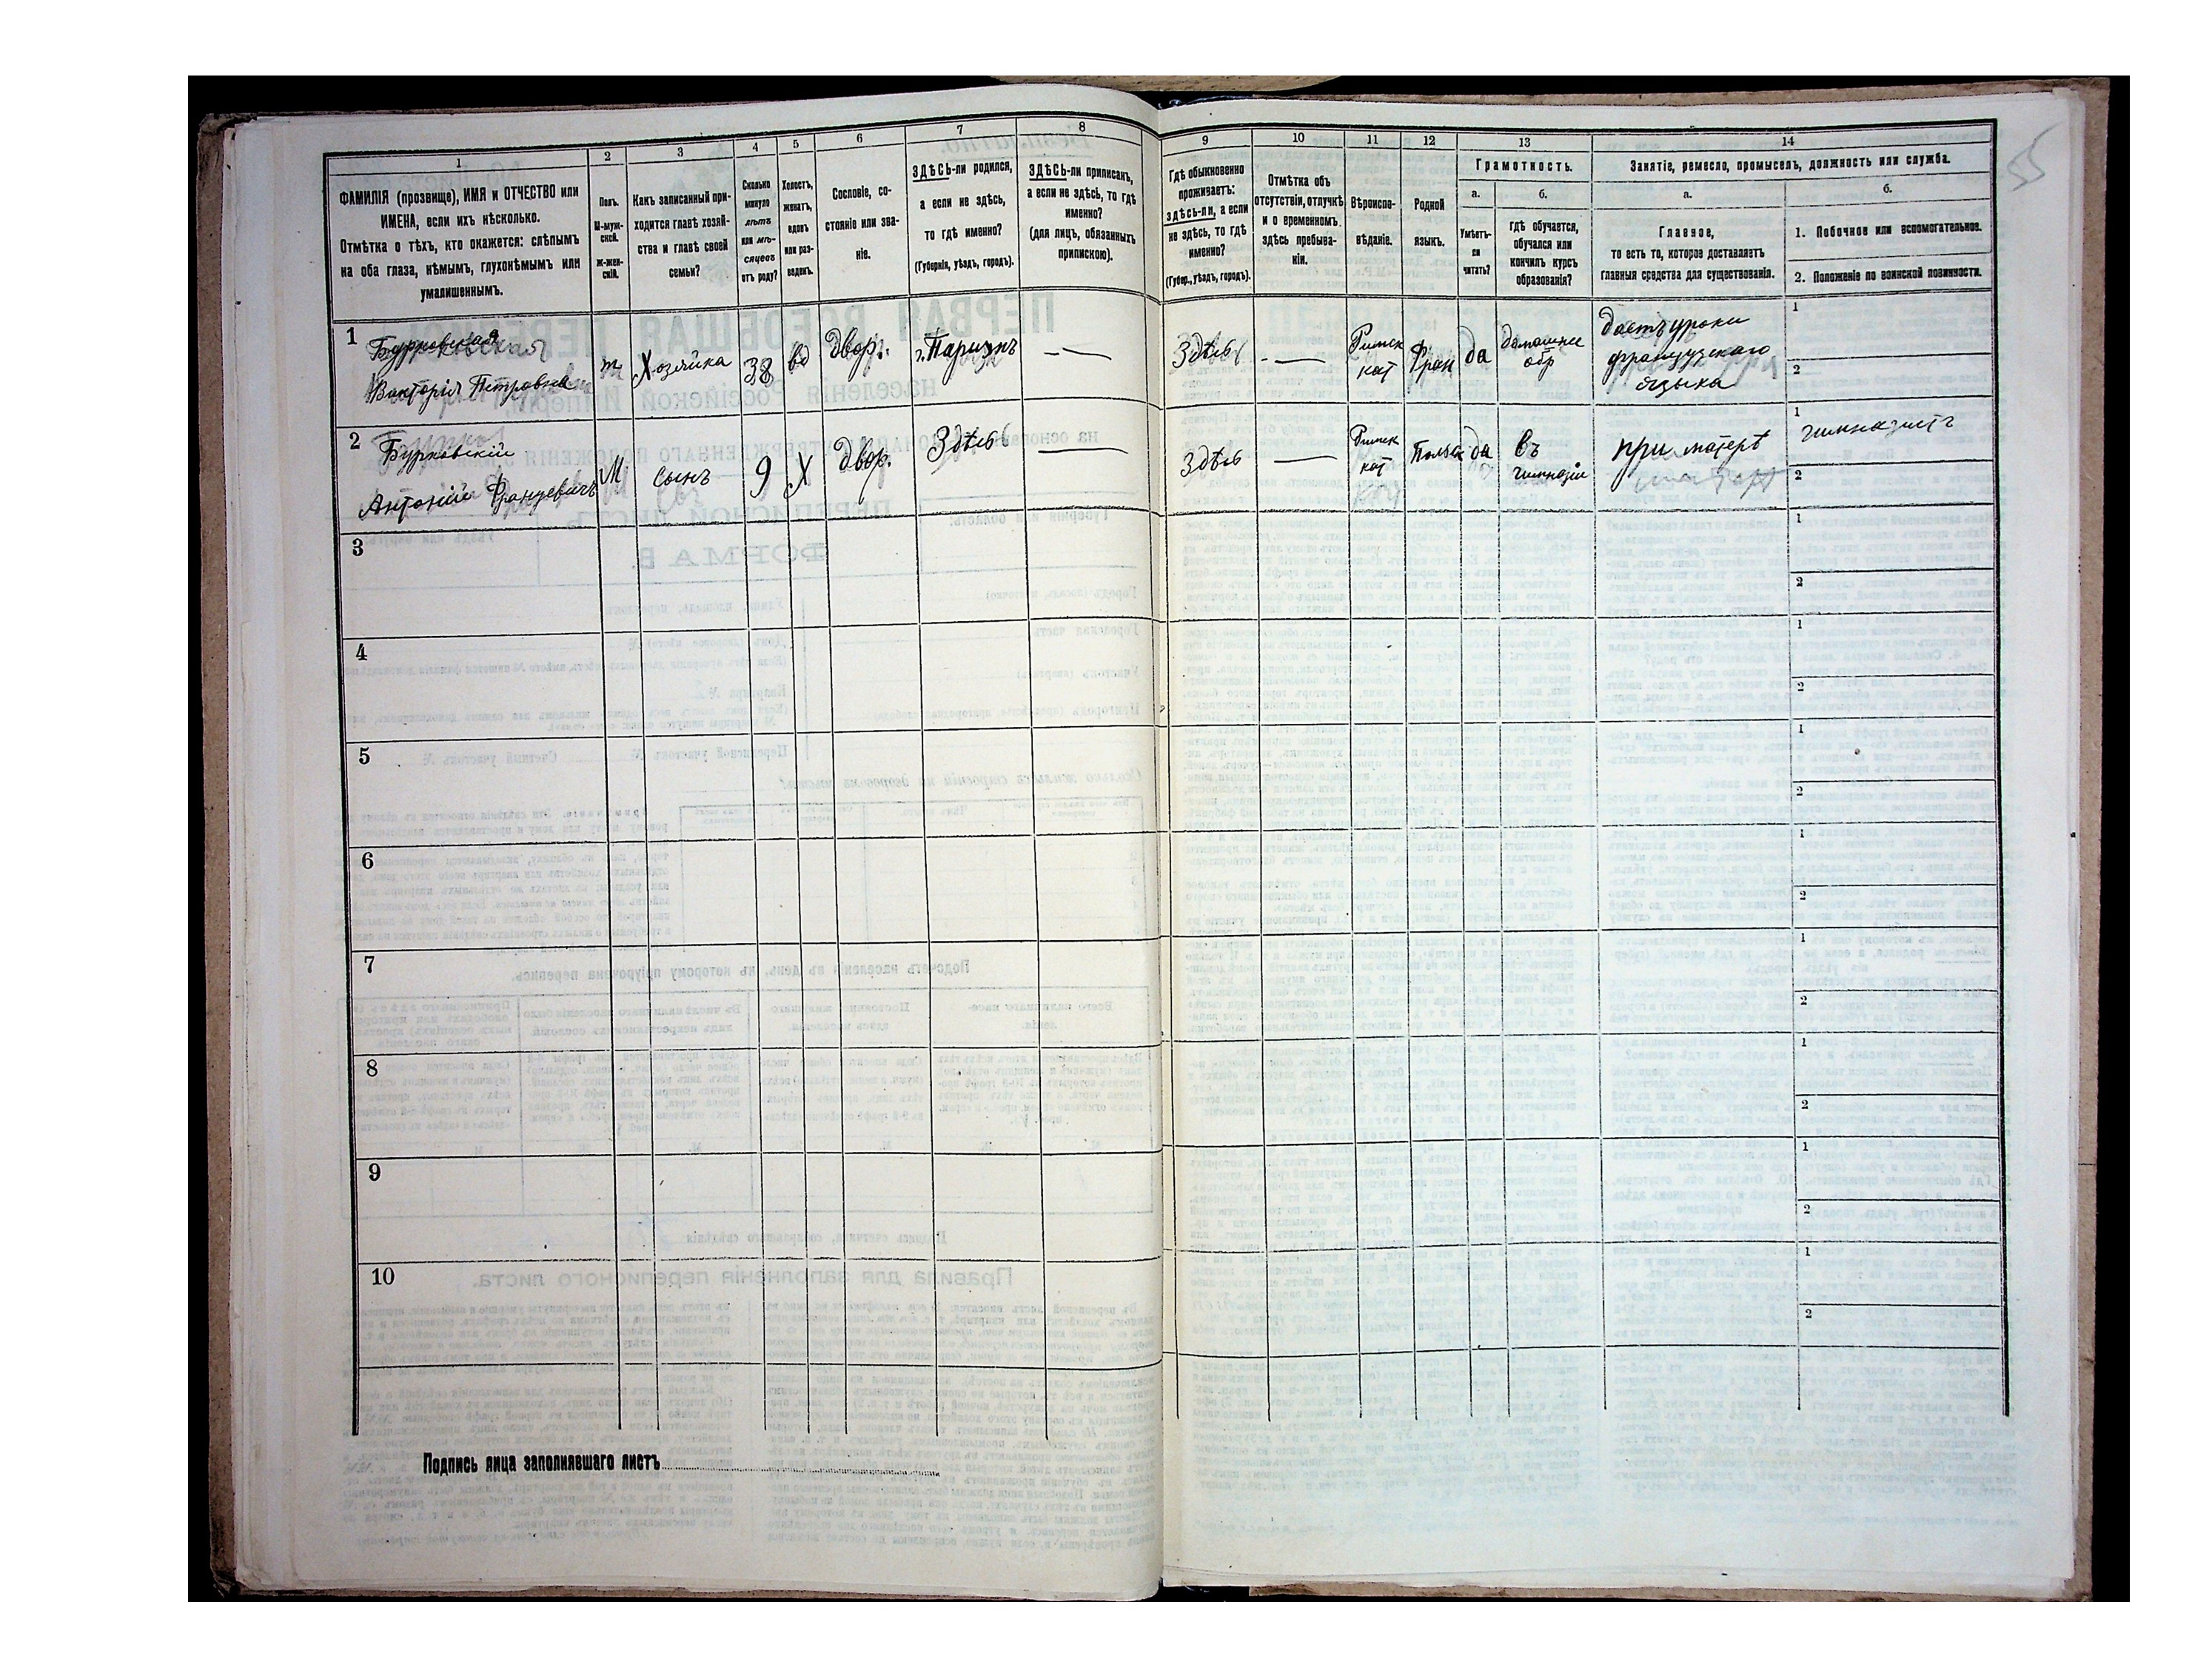 1
ФАМИЛІЯ (прозвище), ИМЯ и ОТЧЕСТВО или
ИМЕНА, если ихъ нѣсколько.
Отмѣтка о тѣхъ, кто окажется: слѣпымъ
на оба глаза, нѣмымъ, глухонѣмымъ или
умалишеннымъ.
2
Полъ.
М-муж-
ской.
ж-жен-
скій.
3
Какъ записанный при-
ходится главѣ хозяй-
ства и главѣ своей
семьи?
4
Сколько
минуло
лѣтъ
или мѣ-
сяцевъ
отъ роду?
5
Холостъ,
женатъ,
вдовъ
или раз-
веденъ.
6
Сословіе, со-
стояніе или зва-
ніе.
7
ЗДѢСЬ-ли родился,
а если не здѣсь,
то гдѣ именно?
(Губернія, уѣздъ, городъ).
8
ЗДѢСЬ-ли приписанъ,
а если не здѣсь, то гдѣ
именно?
(для лицъ, обязанныхъ
припискою).
9
Гдѣ обыкновенно
проживаетъ:
здѣсь-ли, а если
не здѣсь, то гдѣ
именно?
(Губер., уѣздъ, городъ).
10
Отмѣтка объ
отсутствіи, отлучкѣ
и о временномъ
здѣсь пребыва-
ніи.
11
Вѣроиспо-
вѣданіе.
12
Родной
языкъ.
13
Грамотность.
а.
Умѣетъ-
ли
читать?
б.
гдѣ обучается,
обучался или
кончилъ курсъ
образованія?
14
Занятіе, ремесло, промыселъ, должность или служба.
а.
Главное,
то есть то, которое доставляетъ
главныя средства для существованія.
б.
1. Побочное или вспомогательное.
2. Положеніе по воинской повинности.
55
1
Бурковская
Викторія Петровна
Хозяйка
38
вд
двор.
г. Парижъ
Здѣсь
Римск
кат
Фран
да
домашнее
обр
даетъ уроки
французскаго
языка
1
2
2
Бурковскій
Антоній Францевичъ
М
сынъ
9
Х
двор.
Здѣсь
Здѣсь
Римск
кат
Польск
да
въ
гимназіи
при матерѣ
1
гимназистъ
2
3
1
2
4
1
2
5
1
2
6
1
2
7
1
2
8
1
2
9
1
2
10
1
2
Подпись лица заполнявшаго листъ